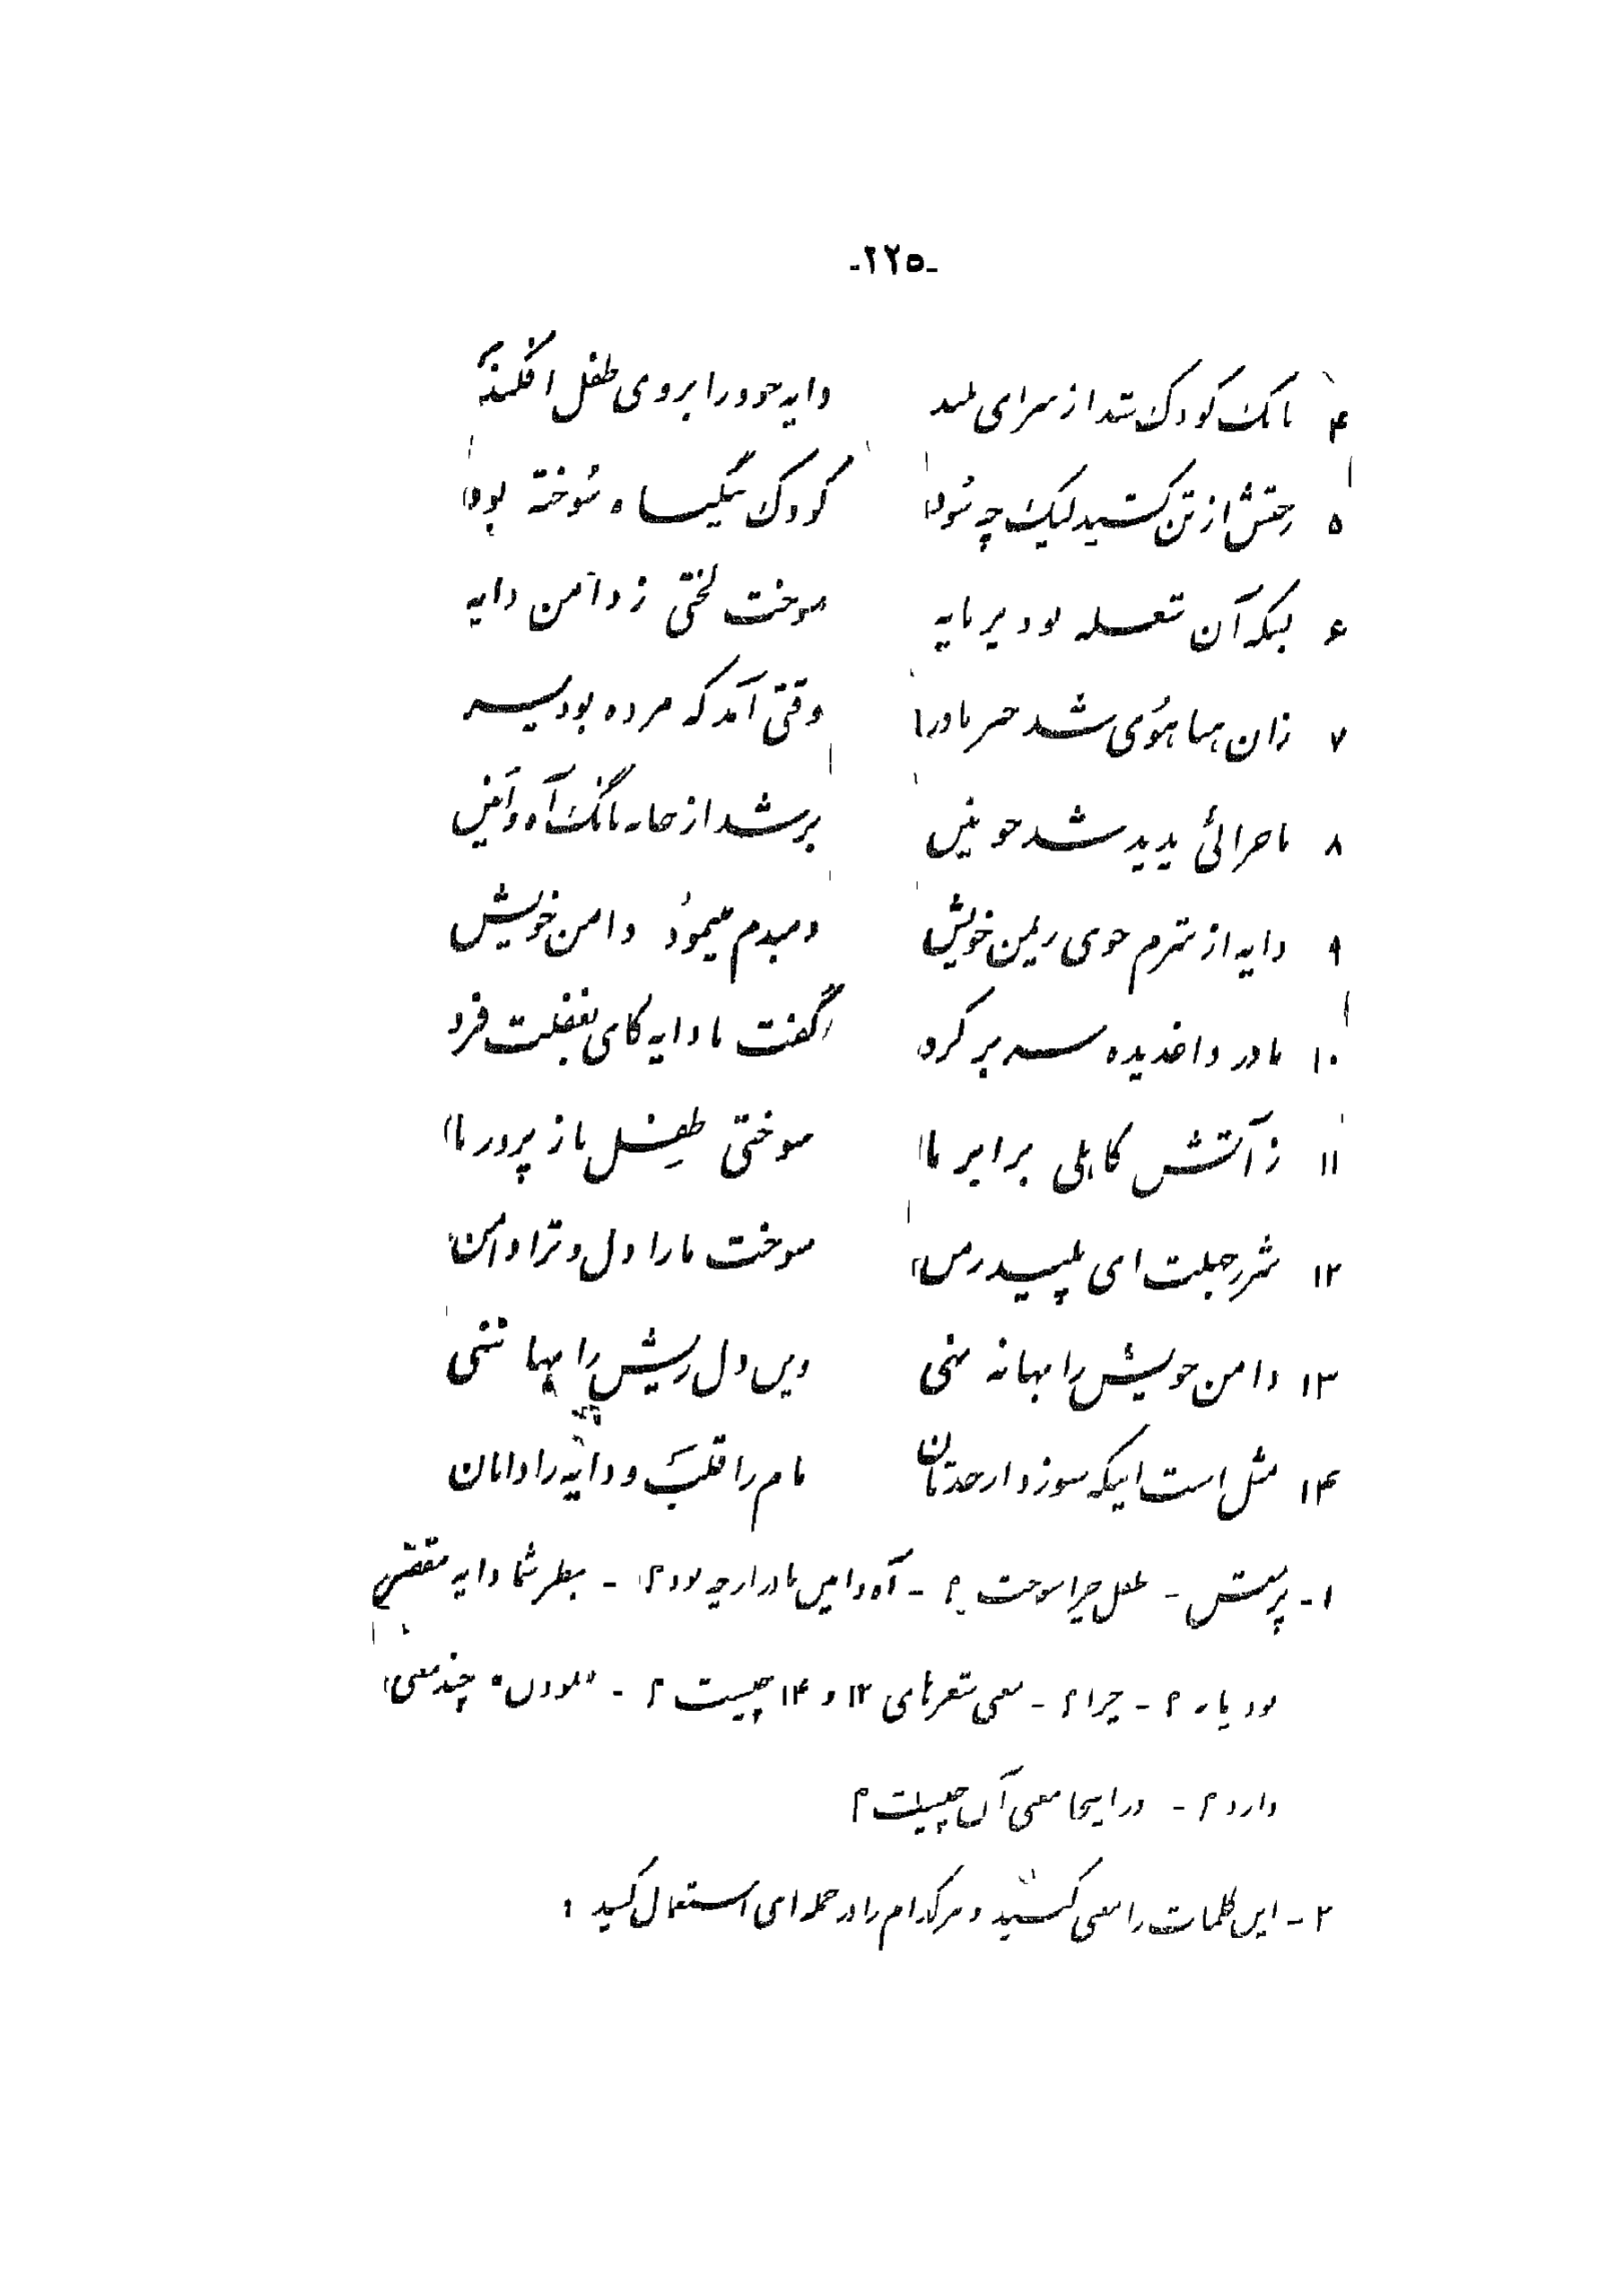 -۲۲۵-
۴ بانگ کودک شد از سرای بلند دایه خود را بروی طفل افکند
۵ رختش از تن کشید لیک چه سود کودک بیگناه سوخته بود
۶ لیکه آن شعله بود پر مایه سوخت لختی ز دامن دایه
۷ زان هیاهوی شد خبر مادر وقتی آمد که مرده بود پسر
۸ ماجرائی پدید شد خونین بر شد از خانه بانگ آه و انین
۹ دایه از شرم خوی ریمن خویش دمبدم مینمود دامن خویش
۱۰ مادر داغدیده سر بر کرد گفت با دایه کای بغفلت فرد
۱۱ ز آتش کاهلی برابر ما سوختی طفل ناز پرور ما
۱۲ شرر جهلت ای پلید سوخت ما را دل و ترا دامن
۱۳ دامن خویش را بهانه کنی وین دل ریش را بها نکنی
۱۴ مثل است اینکه سوزد از حدثان مام را قلب و دایه را دامان
۱- پرسش - طفل چرا سوخت؟ - آه و انین مادر از چه بود؟ - بنظر شما دایه مقصر
بود یا نه؟ - چرا؟ - معنی شعرهای ۱۲ و ۱۴ چیست؟ - چند معنی
دارد؟ - در اینجا معنی آن چیست؟
۲- این کلمات را معنی کنید و هر کدام را در جمله ای استعمال کنید: